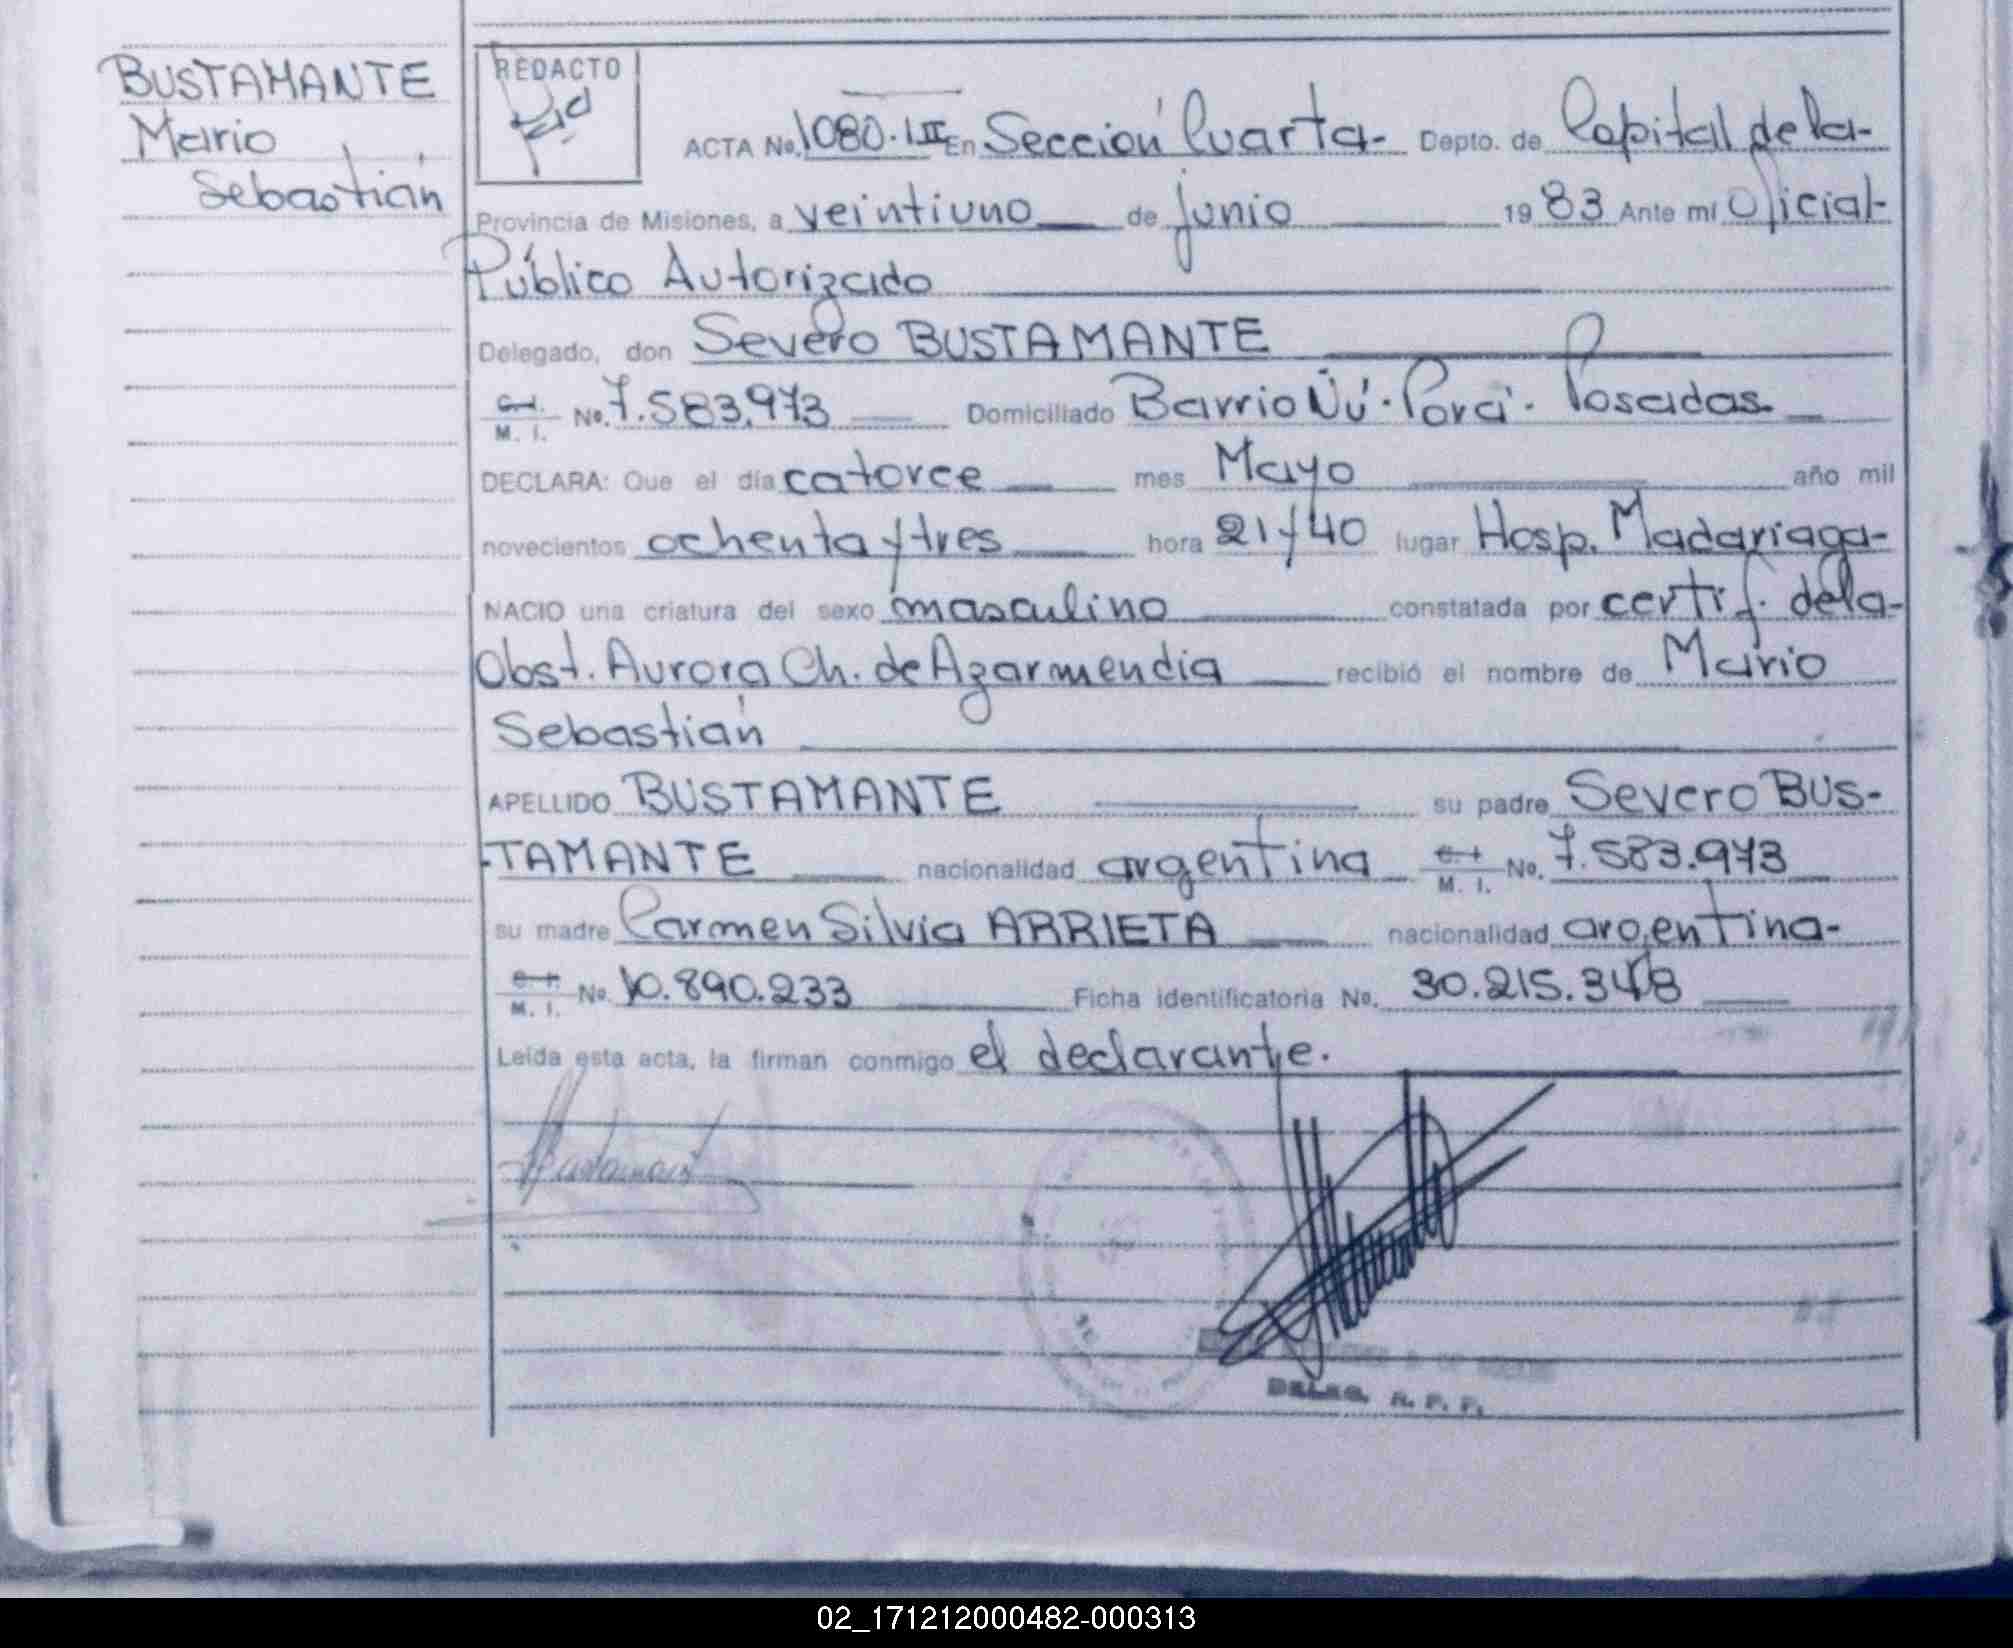 BUSTAMANTE
Mario
Sebastián
REDACTO
ACTA No. 1080. III En Sección Cuarta- Depto. de Capital de la-
Provincia de Misiones, a veintiuno de junio 1983 Ante mí Oficial-
Público Autorizado
Delegado, don Severo BUSTAMANTE
C. I. M. I. No. 7.583.973 Domiciliado Barrio Ñú. Porá. Posadas.
DECLARA: Que el día catorce mes Mayo año mil
novecientos ochenta y tres hora 21 y 40 lugar Hosp. Madariaga-
NACIO una criatura del sexo masculino constatada por certif. de la-
Obst. Aurora Ch. de Azarmendia recibió el nombre de Mario
Sebastián
APELLIDO BUSTAMANTE su padre Severo BUS-
-TAMANTE nacionalidad argentina C. I. M. I. No. 7.583.973
su madre Carmen Silvia ARRIETA nacionalidad argentina-
C. I. M. I. No. 10.890.233 Ficha identificatoria No. 30.215.348
Leída esta acta, la firman conmigo el declarante.
DELEG. R. P. P.
02_171212000482-000313